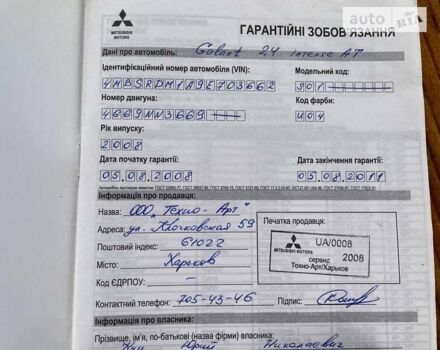 auto RIA
MITSUBISHI MOTORS
ГАРАНТІЙНІ ЗОБОВ'ЯЗАННЯ
Дані про автомобіль: Galant 2.4 intense AT
Ідентифікаційний номер автомобіля (VIN): Модельний код:
4MBSRDM1A9E703662 S01
Номер двигуна: Код фарби:
4G69NN3669 U04
Рік випуску:
2008
Дата початку гарантії: Дата закінчення гарантії:
05.08.2008 05.08.2011
Інформація про продавця:
Назва: ООО "Техно-Арт"
Адреса: ул. Клочковская 59
Поштовий індекс: 61022
Місто: Харьков
Код ЄДРПОУ:
Контактний телефон: 705-43-46
Печатка продавця:
MITSUBISHI MOTORS
UA/0008
сервис 2008
Техно-Арт/Харьков
Підпис:
Інформація про власника:
Прізвище, ім'я, по-батькові (назва фірми) власника:
Юрий Николаевич